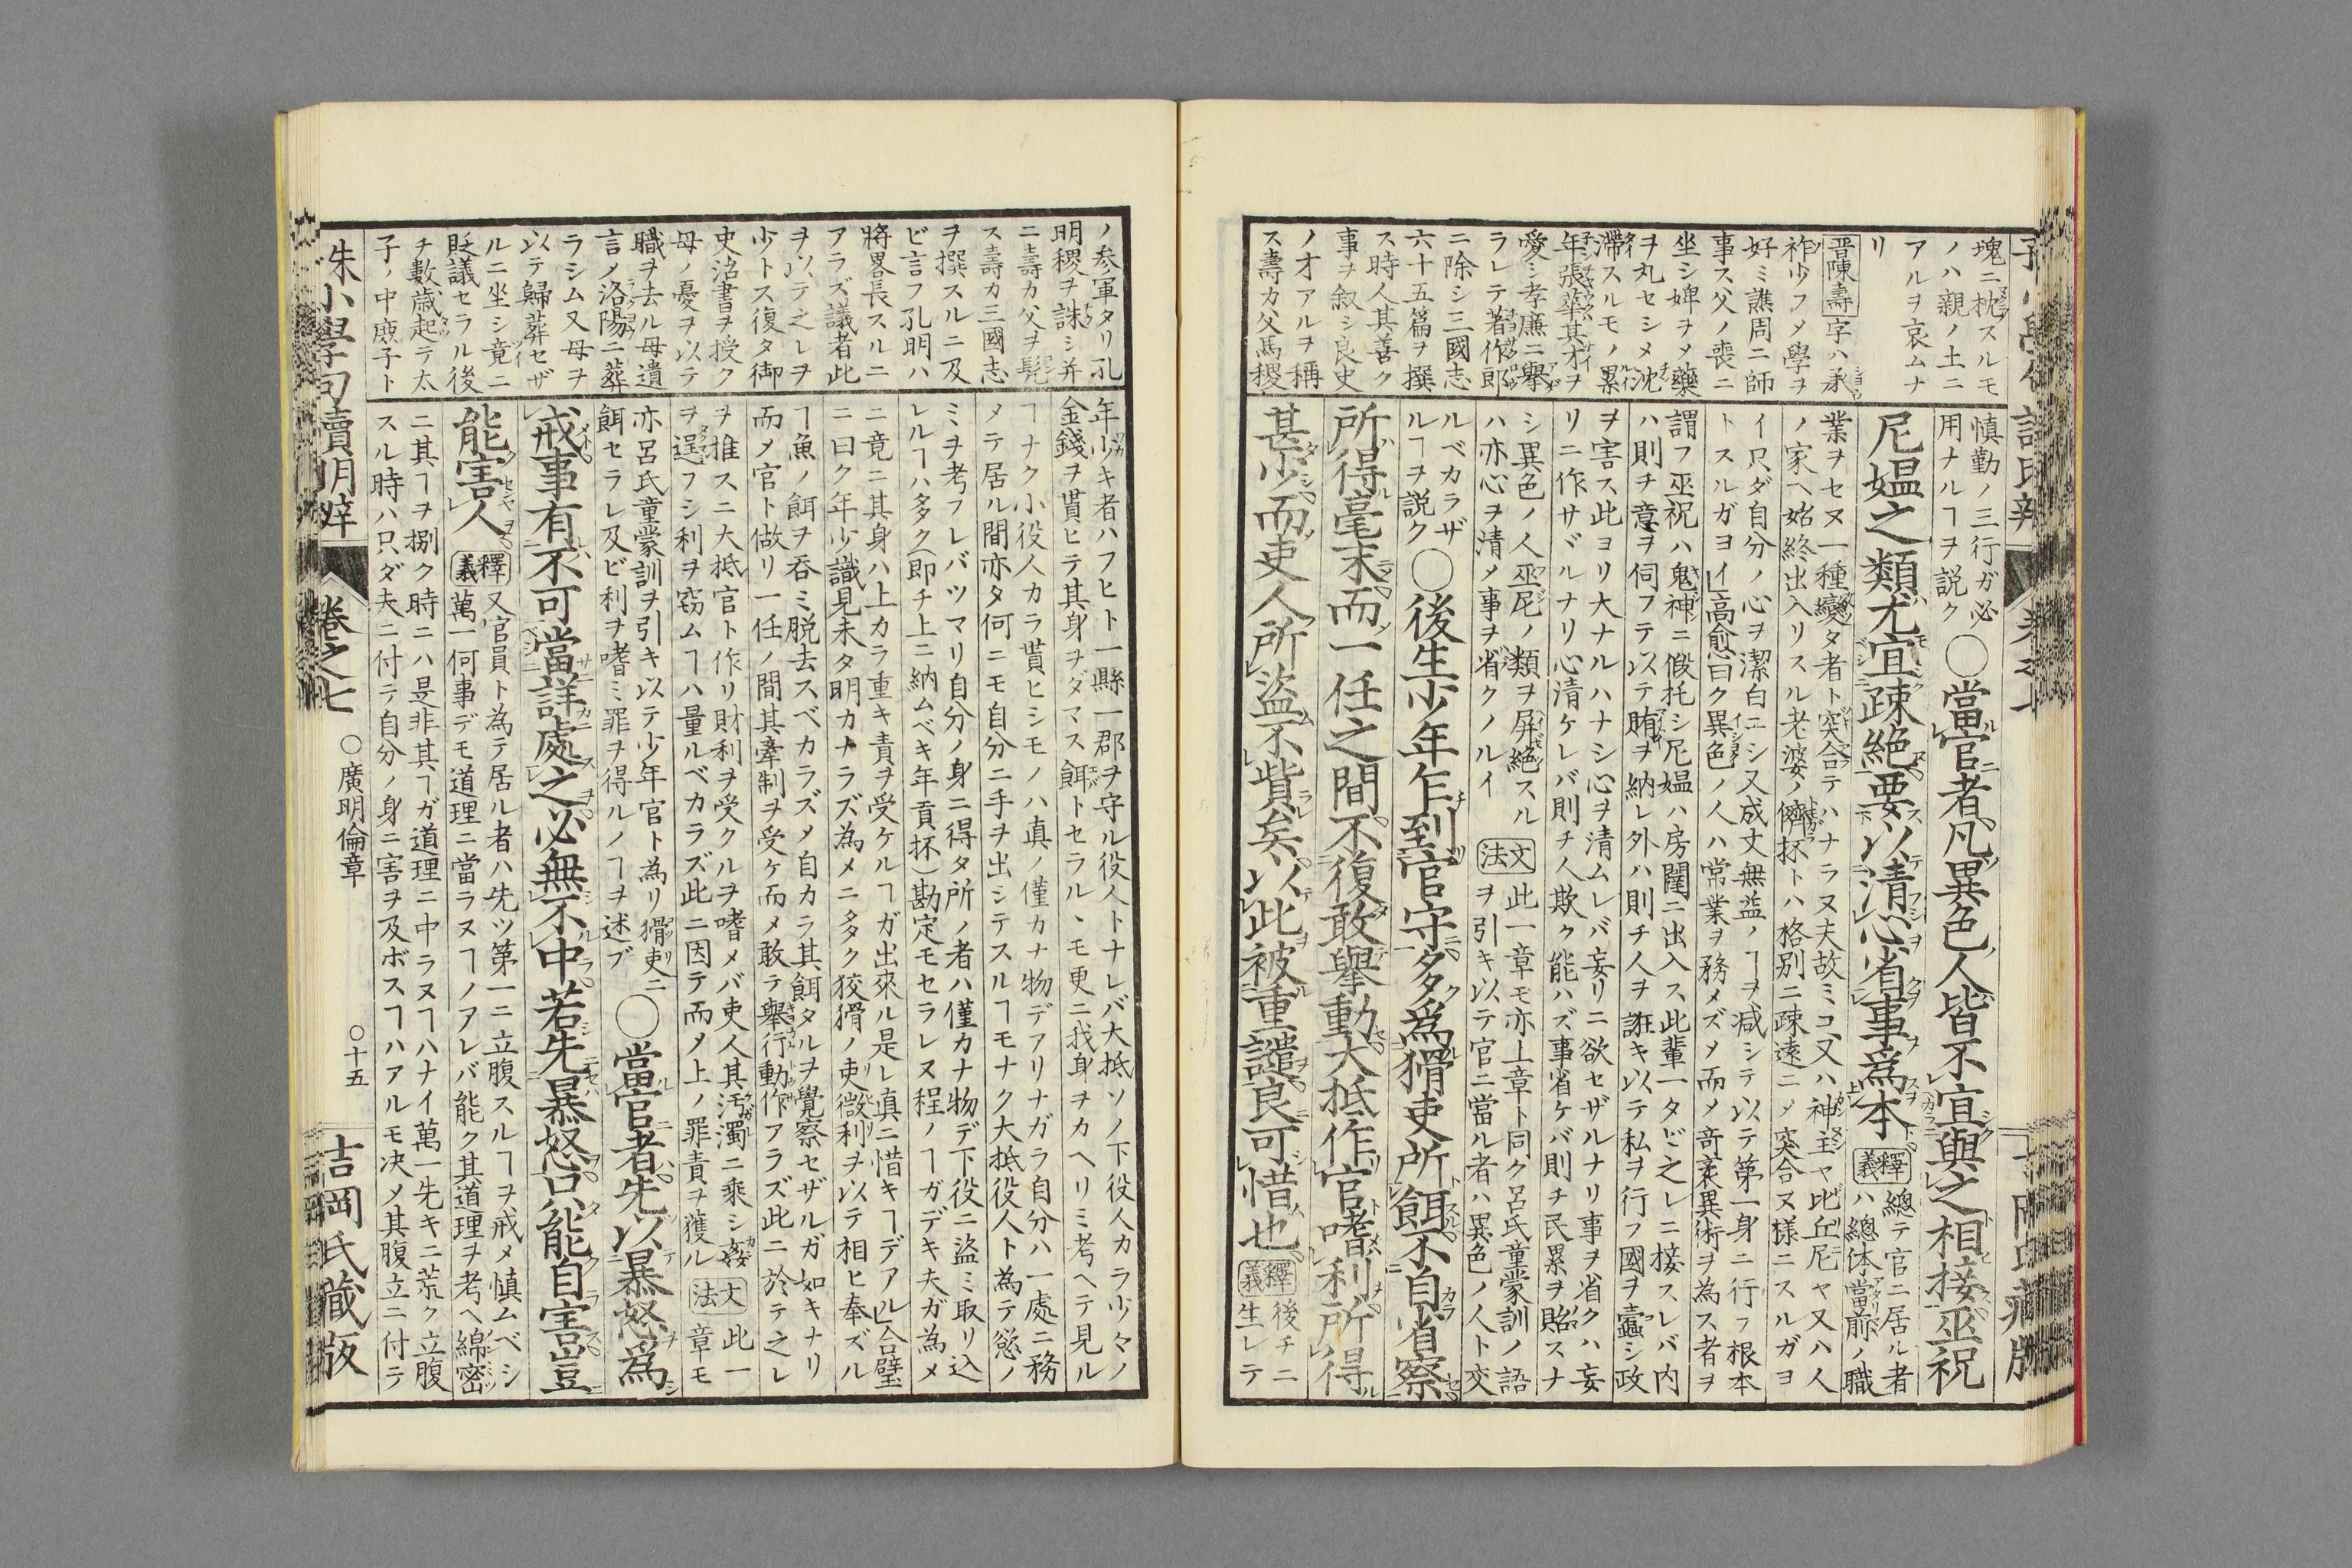 塊ニ枕スルモ
ノハ親ノ土ニ
アルヲ哀ムナ
リ
晋陳壽字ハ承
祚少フメ學ヲ
好ミ譙周ニ師
事ス父ノ喪ニ
坐シ婢ヲメ藥
ヲ丸セシメ沈
滯スルモノ累
年張華其才ヲ
愛シ孝廉ニ擧
ラレテ著作郎
ニ除シ三國志
六十五篇ヲ撰
ス時人其善ク
事ヲ叙シ良史
ノオアルヲ稱
ス壽カ父馬稷
慎勤ノ三行ガ必
用ナルヿヲ説ク
○當官者凡異色人皆不宜與之相接巫祝
尼媼之類尤宜疎絶要以清心省事爲本
釋義
總テ官ニ居ル者
ハ總体當前ノ職
業ヲセヌ一種變タ者ト突合テハナラヌ夫故ミコ又ハ神主ヤ比丘尼ヤ又ハ人
ノ家ヘ始終出入リスル老婆ノ儕抔トハ格別ニ疎遠ニメ突合ヌ様ニスルガヨ
イ只ダ自分ノ心ヲ潔白ニシ又成丈無益ノヿヲ減シテ以テ第一身ニ行フ根本
トスルガヨイ」高愈曰ク異色ノ人ハ常業ヲ務メズメ而メ竒衺異術ヲ為ス者ヲ
謂フ巫祝ハ鬼神ニ假托シ尼媼ハ房闥ニ出入ス此輩一タビ之レニ接スレバ内
ハ則チ意ヲ伺フテ以テ賄ヲ納レ外ハ則チ人ヲ誑キ以テ私ヲ行フ國ヲ蠹シ政
ヲ害ス此ヨリ大ナルハナシ心ヲ清ムレバ妄リニ欲セザルナリ事ヲ省クハ妄
リニ作サヾルナリ心清ケレバ則チ人欺ク能ハズ事省ケバ則チ民累ヲ貽スナ
シ異色ノ人巫尼ノ類ヲ屏絶スル
ハ亦心ヲ清メ事ヲ省クノルイ
文法
此一章モ亦上章ト同ク呂氏童蒙訓ノ語
ヲ引キ以テ官ニ當ル者ハ異色ノ人ト交
ルベカラザ
ルヿヲ説ク
○後生少年乍到官守多爲猾吏所餌不自省察
所得毫末而一任之間不復敢擧動大抵作官嗜利所得
甚少而吏人所盜不貲矣以此被重譴良可惜也
釋義
後チニ
生レテ
ノ参軍タリ孔
明稷ヲ誅シ并
ニ壽カ父ヲ髠
ス壽カ三國志
ヲ撰スルニ及
ビ言フ孔明ハ
將畧長スルニ
アラズ議者此
ヲ以テ之レヲ
少トス復タ御
史治書ヲ授ク
母ノ憂ヲ以テ
職ヲ去ル母遺
言ノ洛陽ニ葬
ラシム又母ヲ
以テ歸葬セザ
ルニ坐シ竟ニ
貶議セラル後
チ數歳起テ太
子ノ中庶子ト
年少キ者ハフヒト一縣一郡ヲ守ル役人トナレバ大抵ソノ下役人カラ少々ノ
金錢ヲ貰ヒテ其身ヲダマス餌トセラルヽモ更ニ我身ヲカヘリミ考ヘテ見ル
ヿナク小役人カラ貰ヒシモノハ真ノ僅カナ物デアリナガラ自分ハ一處ニ務
メテ居ル間亦タ何ニモ自分ニ手ヲ出シテスルヿモナク大抵役人ト為テ慾ノ
ミヲ考フレバツマリ自分ノ身ニ得タ所ノ者ハ僅カナ物デ下役ニ盜ミ取リ込
レルヿハ多ク(即チ上ニ納ムベキ年貢抔)勘定モセラレヌ程ノヿガデキ夫ガ為メ
ニ竟ニ其身ハ上カラ重キ責ヲ受ケルヿガ出來ル是レ真ニ惜キヿデアル」合璧
ニ曰ク年少識見未タ明カナラズ為メニ多ク狡猾ノ吏微利ヲ以テ相ヒ奉ズル
ヿ魚ノ餌ヲ呑ミ脱去スベカラズメ自カラ其餌タルヲ覺察セザルガ如キナリ
而メ官ト做リ一任ノ間其牽制ヲ受ケ而メ敢テ擧行動作アラズ此ニ於テ之レ
ヲ推スニ大抵官ト作リ財利ヲ受クルヲ嗜メバ吏人其汚濁ニ乘シ姦
ヲ逞フシ利ヲ窃ムヿハ量ルベカラズ此ニ因テ而メ上ノ罪責ヲ獲ル
文法
此一
章モ
亦呂氏童蒙訓ヲ引キ以テ少年官ト為リ猾吏ニ
餌セラレ及ビ利ヲ嗜ミ罪ヲ得ルノヿヲ述ブ
○當官者先以暴怒爲
戒事有不可當詳處之必無不中若先暴怒只能自害豈
能害人
釋義
又官員ト為テ居ル者ハ先ツ第一ニ立腹スルヿヲ戒メ慎ムベシ
萬一何事デモ道理ニ當ラヌヿノアレバ能ク其道理ヲ考ヘ綿密
ニ其ヿヲ捌ク時ニハ是非其ヿガ道理ニ中ラヌヿハナイ萬一先キニ荒ク立腹
スル時ハ只ダ夫ニ付テ自分ノ身ニ害ヲ及ボスヿハアルモ决メ其腹立ニ付テ
朱小學句讀明辯
卷之七
○廣明倫章
○十五
吉岡氏藏版